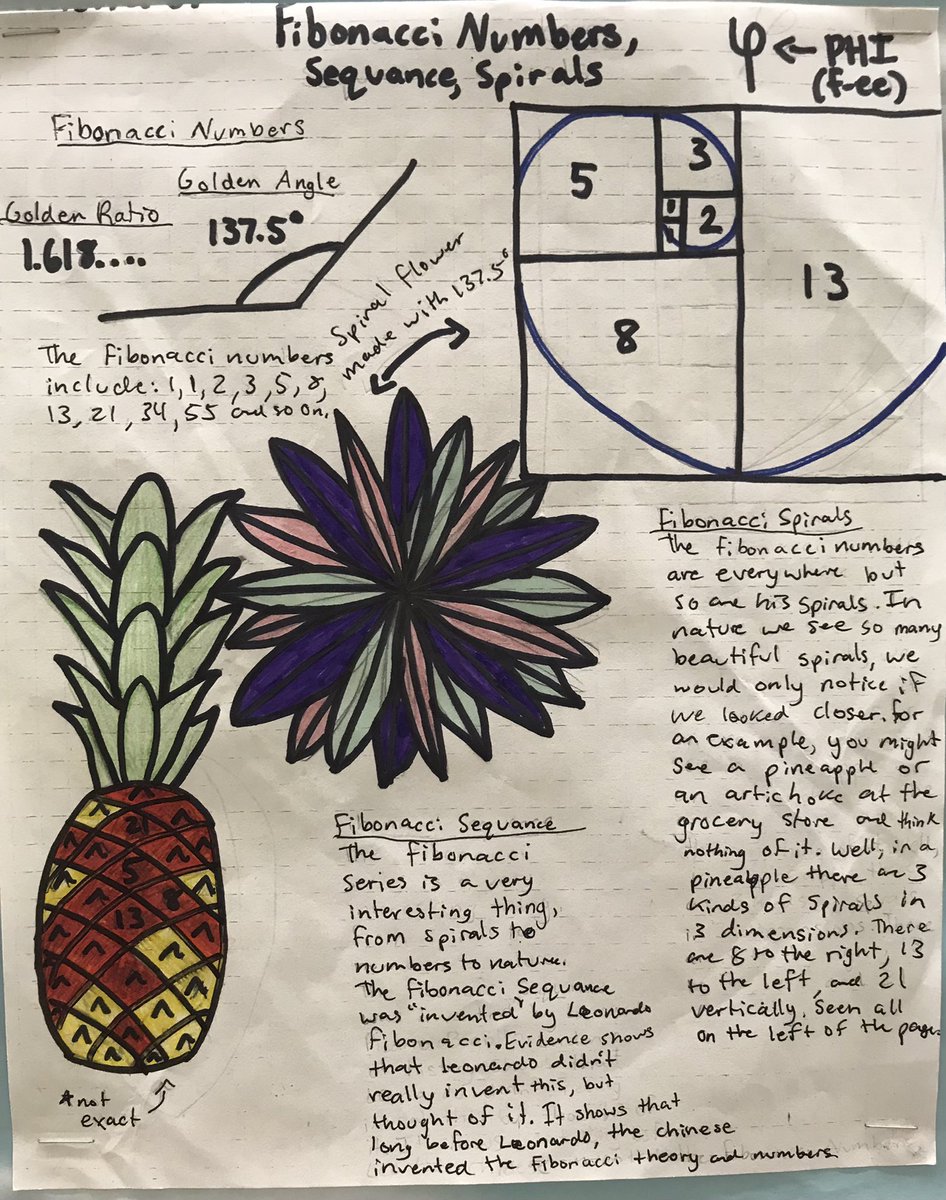 Fibonacci Numbers,
Sequance, Spirals
φ ← PHI
(f-ee)
Fibonacci Numbers
Golden Angle
137.5°
Golden Ratio
1.618....
The Fibonacci numbers
include: 1, 1, 2, 3, 5, 8,
13, 21, 34, 55 and so on.
Spiral flower
made with 137.5°
5
3
2
8
13
Fibonacci Spirals
The fibonacci numbers
are everywhere but
so are his spirals. In
nature we see so many
beautiful spirals, we
would only notice if
we looked closer. for
an example, you might
see a pineapple or
an artichoke at the
grocery store and think
nothing of it. Well, in a
pineapple there are 3
kinds of spirals in
3 dimensions. There
are 8 to the right, 13
to the left, and 21
vertically. Seen all
on the left of the page.
21
5
8
13
not
exact
Fibonacci Sequance
The fibonacci
series is a very
interesting thing,
from spirals to
numbers to nature.
The fibonacci Sequance
was "invented" by Leonardo
fibonacci. Evidence shows
that leonardo didn't
really invent this, but
thought of it. It shows that
long before Leonardo, the chinese
invented the Fibonacci theory and numbers